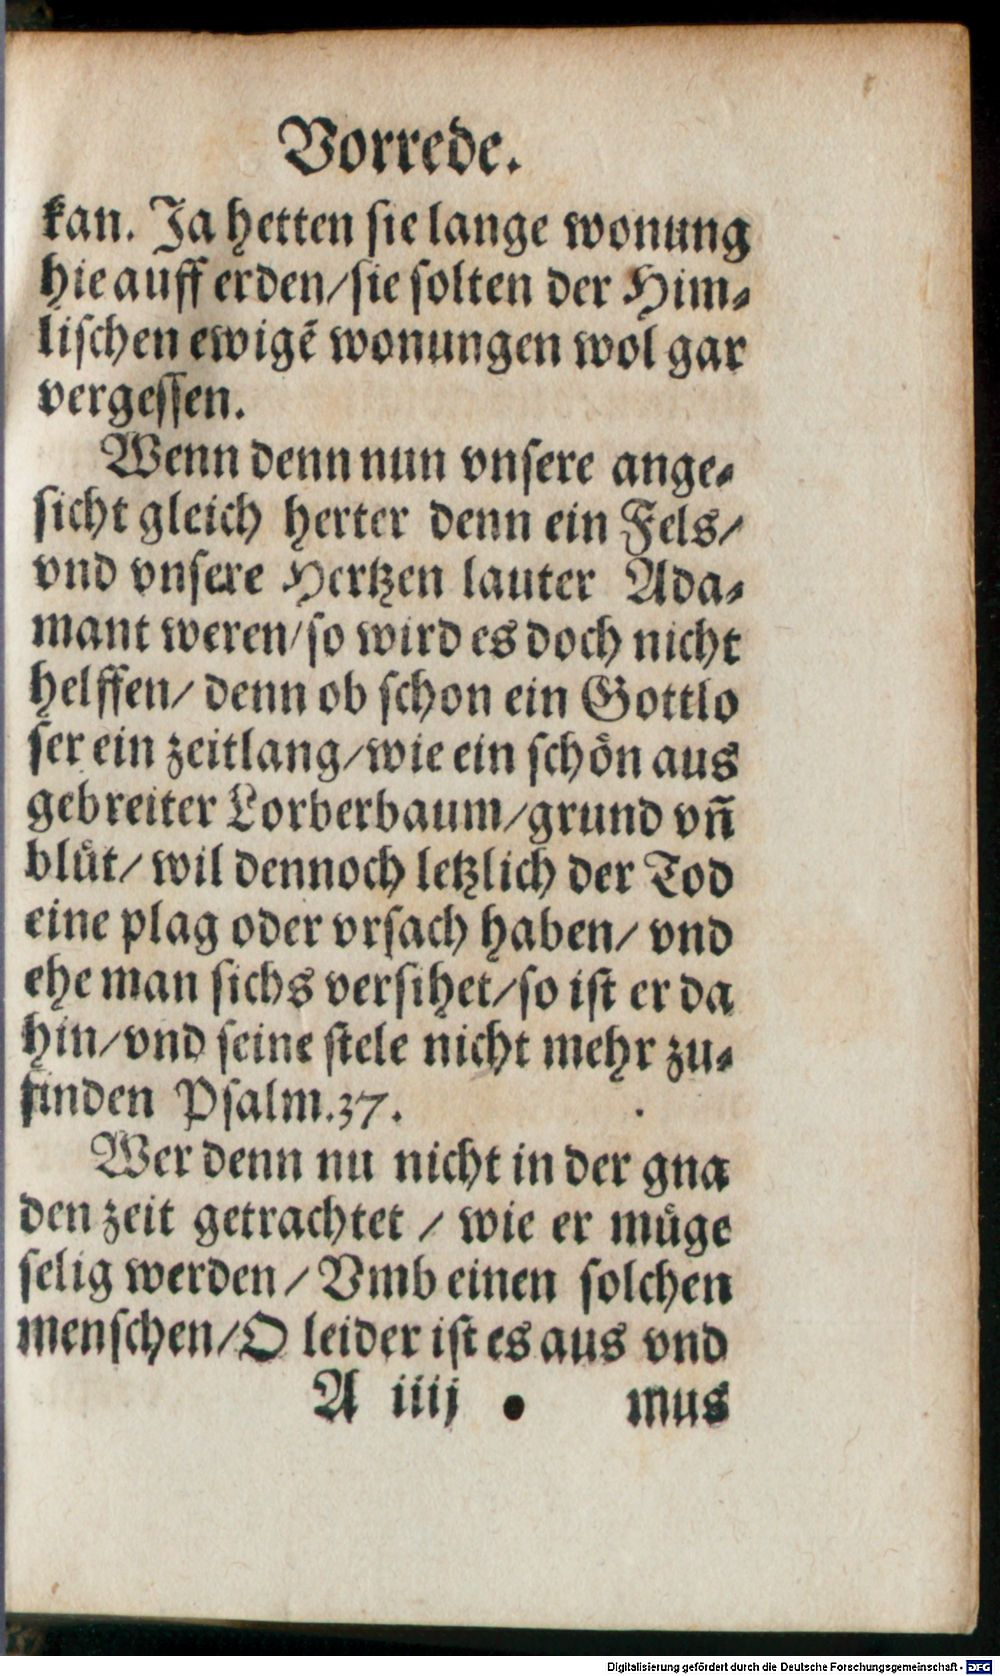 Vorrede.
kan. Ja hetten sie lange wonung
hie auff erden/sie solten der Him-
lischen ewigẽ wonungen wol gar
vergessen.
Wenn denn nun vnsere ange-
sicht gleich herter denn ein Fels/
vnd vnsere Hertzen lauter Ada-
mant weren/so wird es doch nicht
helffen/ denn ob schon ein Gottlo
ser ein zeitlang/wie ein schön aus
gebreiter Lorberbaum/grund vñ
blüt/ wil dennoch letzlich der Tod
eine plag oder vrsach haben/ vnd
ehe man sichs versihet/so ist er da
hin/vnd seine stele nicht mehr zu-
finden Psalm.37.
Wer denn nu nicht in der gna
den zeit getrachtet / wie er müge
selig werden/ Vmb einen solchen
menschen/O leider ist es aus vnd
A iiij • mus
Digitalisierung gefördert durch die Deutsche Forschungsgemeinschaft - DFG